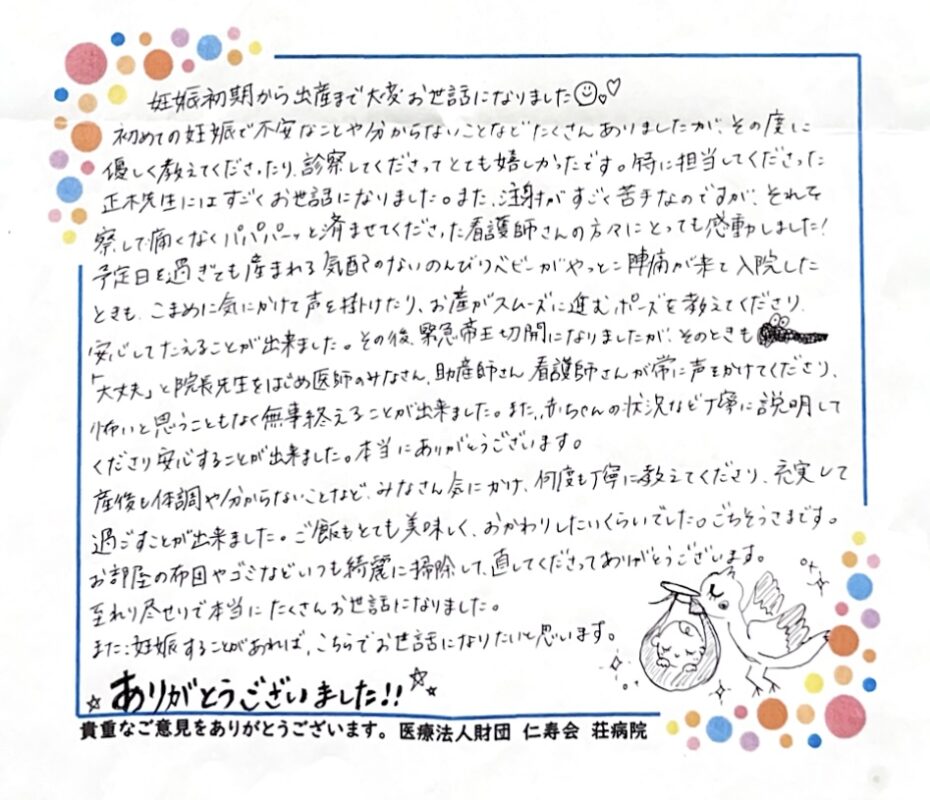 妊娠初期から出産まで大変お世話になりました
初めての妊娠で不安なことや分からないことなどたくさんありましたが、その度に
優しく教えてくださったり、診察してくださってとても嬉しかったです。特に担当してくださった
正木先生にはすごくお世話になりました。また、注射がすごく苦手なのですが、それを
察して痛くなくパパパーッと済ませてくださった看護師さんの方々にとっても感動しました!
予定日を過ぎても産まれる気配のないのんびりベビーがやっとこ陣痛が来て入院した
ときも、こまめに気にかけて声を掛けたり、お産がスムーズに進むポーズを教えてくださり、
安心してたえることが出来ました。その後、緊急帝王切開になりましたが、そのときも
「大丈夫」と院長先生をはじめ医師のみなさん、助産師さん看護師さんが常に声をかけてくださり、
怖いと思うこともなく無事終えることが出来ました。また、赤ちゃんの状況など丁寧に説明して
くださり安心することが出来ました。本当にありがとうございます。
産後も体調や分からないことなど、みなさん気にかけ、何度も丁寧に教えてくださり、充実して
過ごすことが出来ました。ご飯もとても美味しく、おかわりしたいくらいでした。ごちそうさまです。
お部屋の布団やゴミなどいつも綺麗に掃除して、直してくださってありがとうございます。
至れり尽せりで本当にたくさんお世話になりました。
また妊娠することがあれば、こちらでお世話になりたいと思います。
ありがとうございました!!
貴重なご意見をありがとうございます。医療法人財団 仁寿会 荘病院